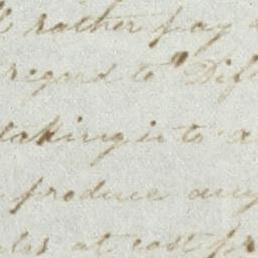 rather pay
regard to Diff
taking is to a
produce any
at cost pr